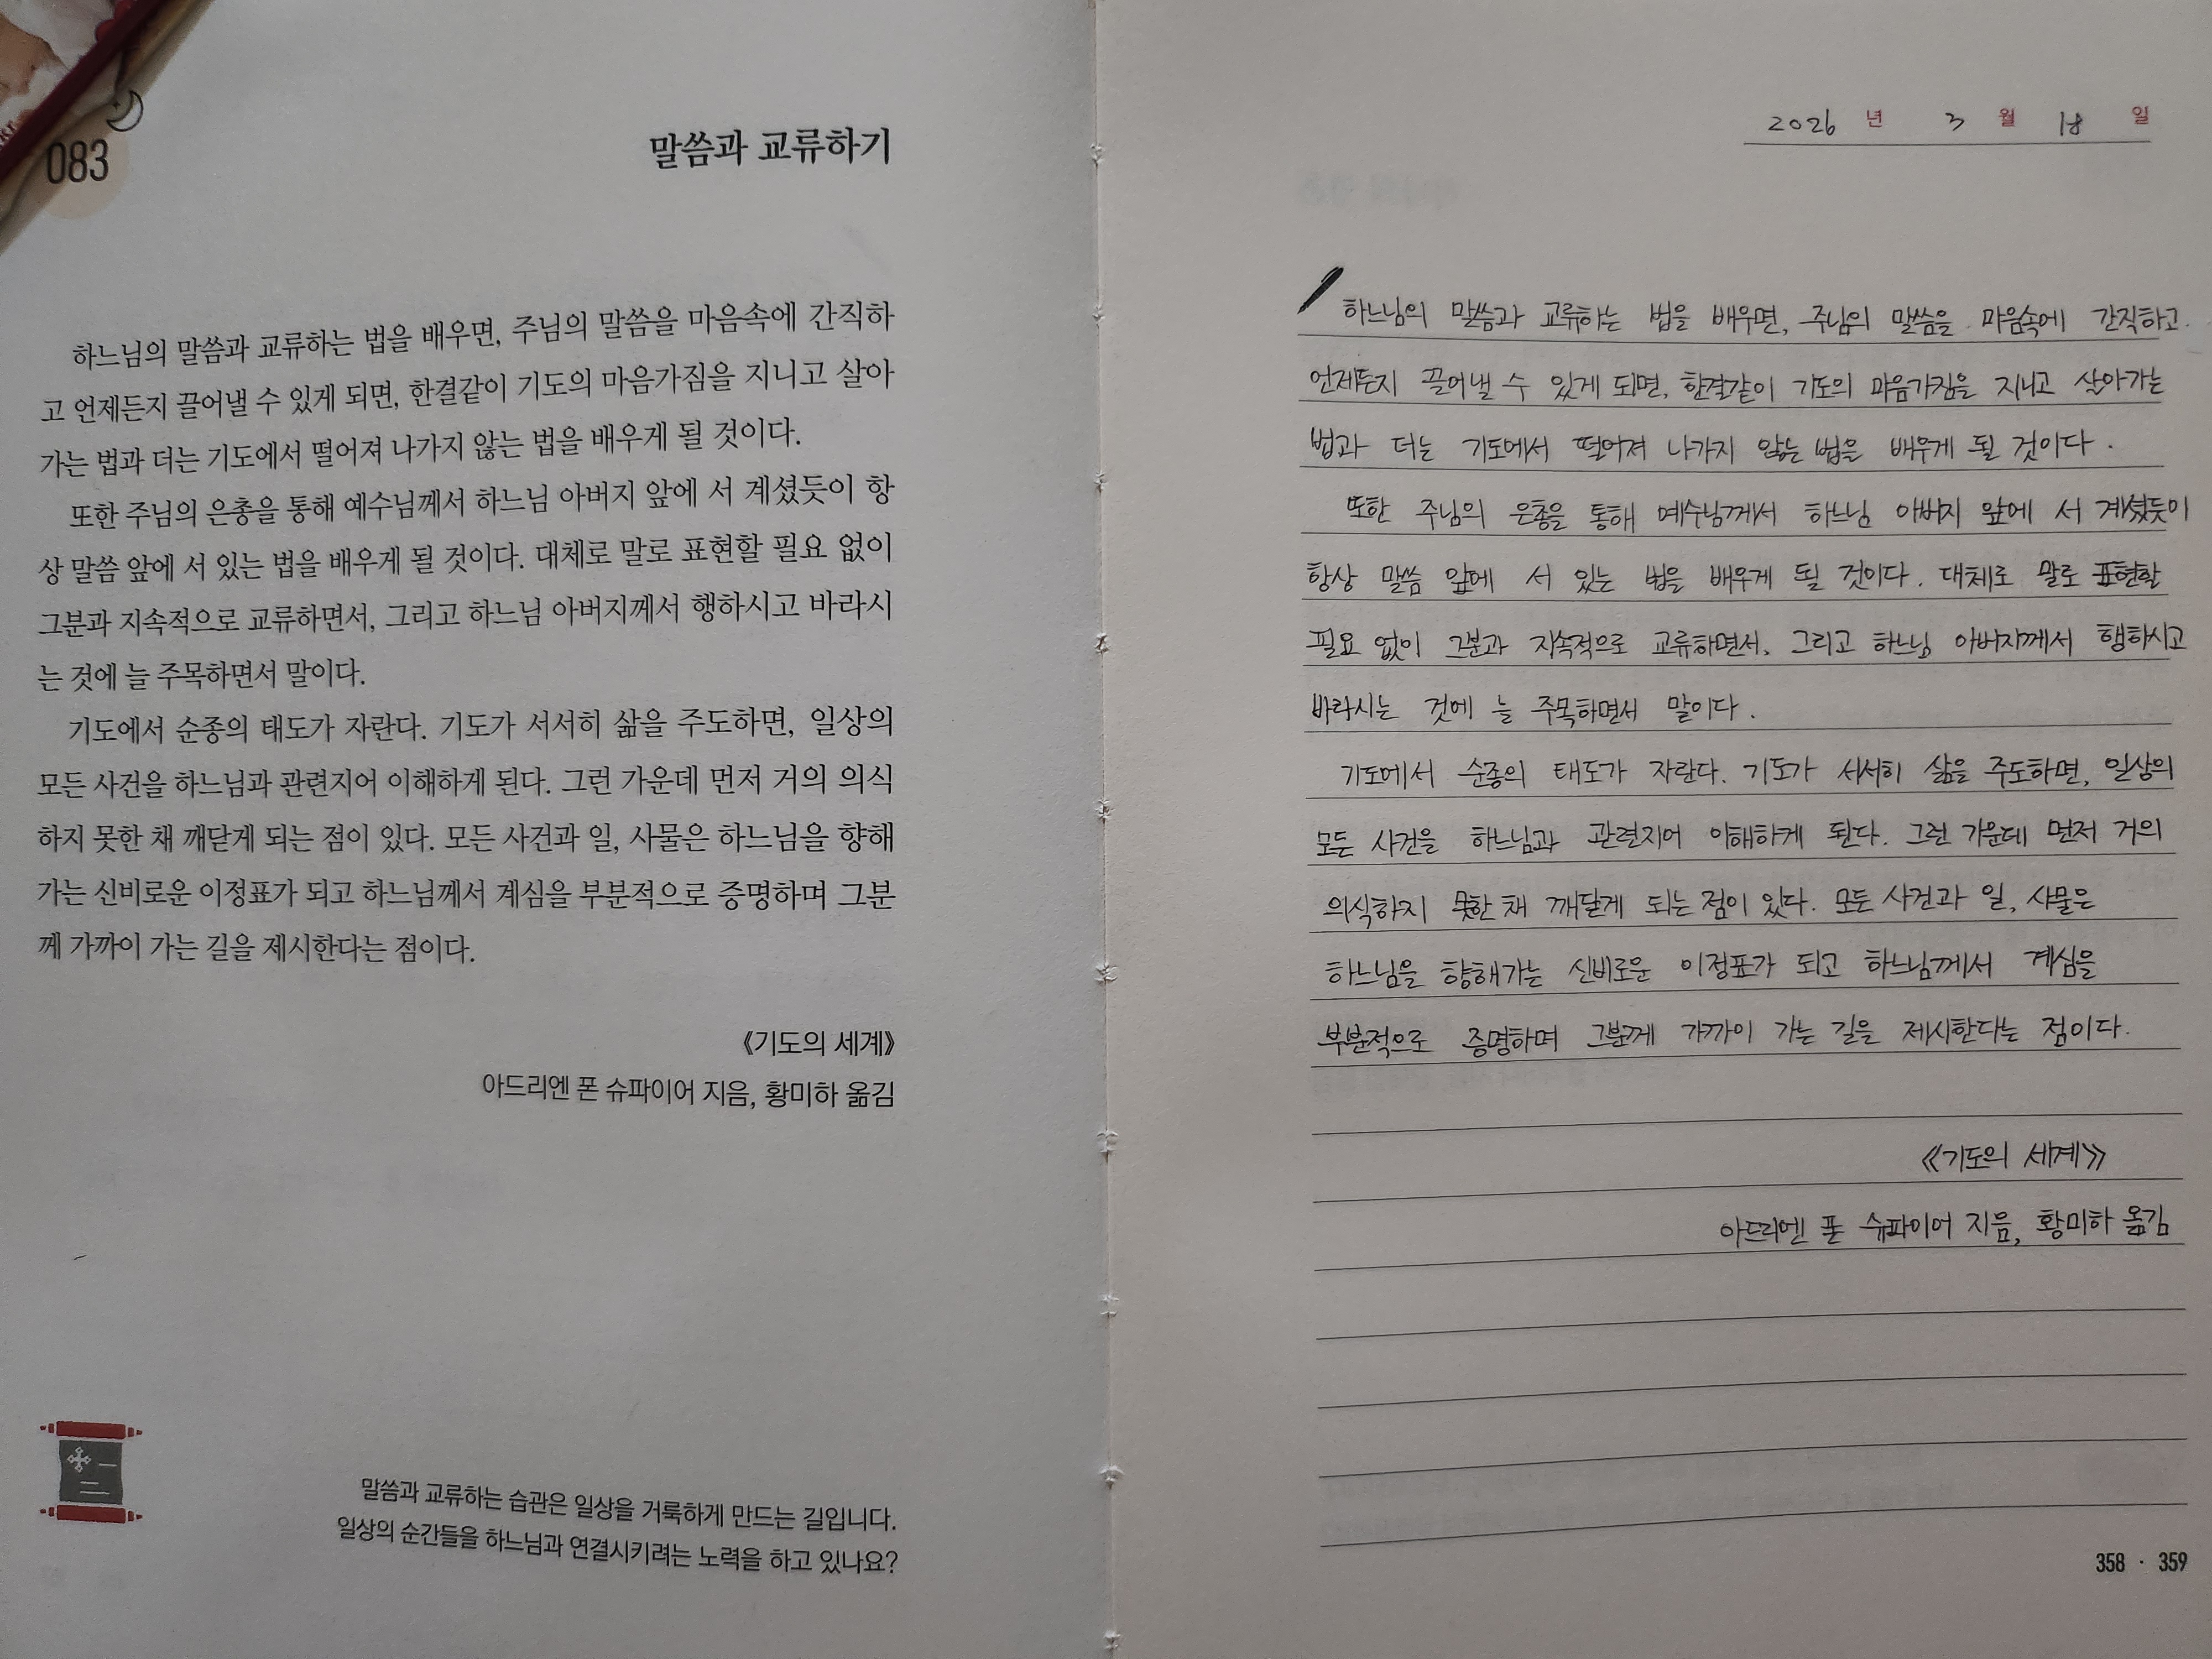 083
말씀과 교류하기
하느님의 말씀과 교류하는 법을 배우면, 주님의 말씀을 마음속에 간직하
고 언제든지 끌어낼 수 있게 되면, 한결같이 기도의 마음가짐을 지니고 살아
가는 법과 더는 기도에서 떨어져 나가지 않는 법을 배우게 될 것이다.
또한 주님의 은총을 통해 예수님께서 하느님 아버지 앞에 서 계셨듯이 항
상 말씀 앞에 서 있는 법을 배우게 될 것이다. 대체로 말로 표현할 필요 없이
그분과 지속적으로 교류하면서, 그리고 하느님 아버지께서 행하시고 바라시
는 것에 늘 주목하면서 말이다.
기도에서 순종의 태도가 자란다. 기도가 서서히 삶을 주도하면, 일상의
모든 사건을 하느님과 관련지어 이해하게 된다. 그런 가운데 먼저 거의 의식
하지 못한 채 깨닫게 되는 점이 있다. 모든 사건과 일, 사물은 하느님을 향해
가는 신비로운 이정표가 되고 하느님께서 계심을 부분적으로 증명하며 그분
께 가까이 가는 길을 제시한다는 점이다.
《기도의 세계》
아드리엔 폰 슈파이어 지음, 황미하 옮김
말씀과 교류하는 습관은 일상을 거룩하게 만드는 길입니다.
일상의 순간들을 하느님과 연결시키려는 노력을 하고 있나요?
2026 년 3 월 18 일
하느님의 말씀과 교류하는 법을 배우면, 주님의 말씀을 마음속에 간직하고
언제든지 끌어낼 수 있게 되면, 한결같이 기도의 마음가짐을 지니고 살아가는
법과 더는 기도에서 떨어져 나가지 않는 법을 배우게 될 것이다.
또한 주님의 은총을 통해 예수님께서 하느님 아버지 앞에 서 계셨듯이
항상 말씀 앞에 서 있는 법을 배우게 될 것이다. 대체로 말로 표현할
필요 없이 그분과 지속적으로 교류하면서, 그리고 하느님 아버지께서 행하시고
바라시는 것에 늘 주목하면서 말이다.
기도에서 순종의 태도가 자란다. 기도가 서서히 삶을 주도하면, 일상의
모든 사건을 하느님과 관련지어 이해하게 된다. 그런 가운데 먼저 거의
의식하지 못한 채 깨닫게 되는 점이 있다. 모든 사건과 일, 사물은
하느님을 향해가는 신비로운 이정표가 되고 하느님께서 계심을
부분적으로 증명하며 그분께 가까이 가는 길을 제시한다는 점이다.
《기도의 세계》
아드리엔 폰 슈파이어 지음, 황미하 옮김
358 · 359